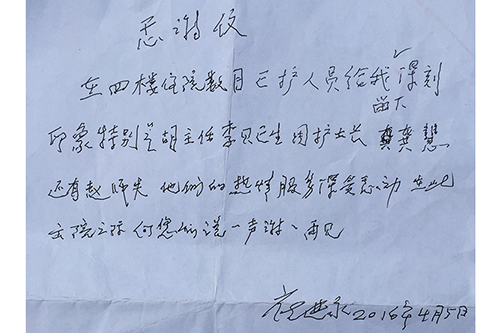 感谢信
在四楼住院数月已护人员给我留下深刻
印象特别是胡主任李贝已生周护士长龚慧
还有赵师失他们的热情服务深受感动在此
立院之际向您们说一声谢谢再见
2016年4月5日